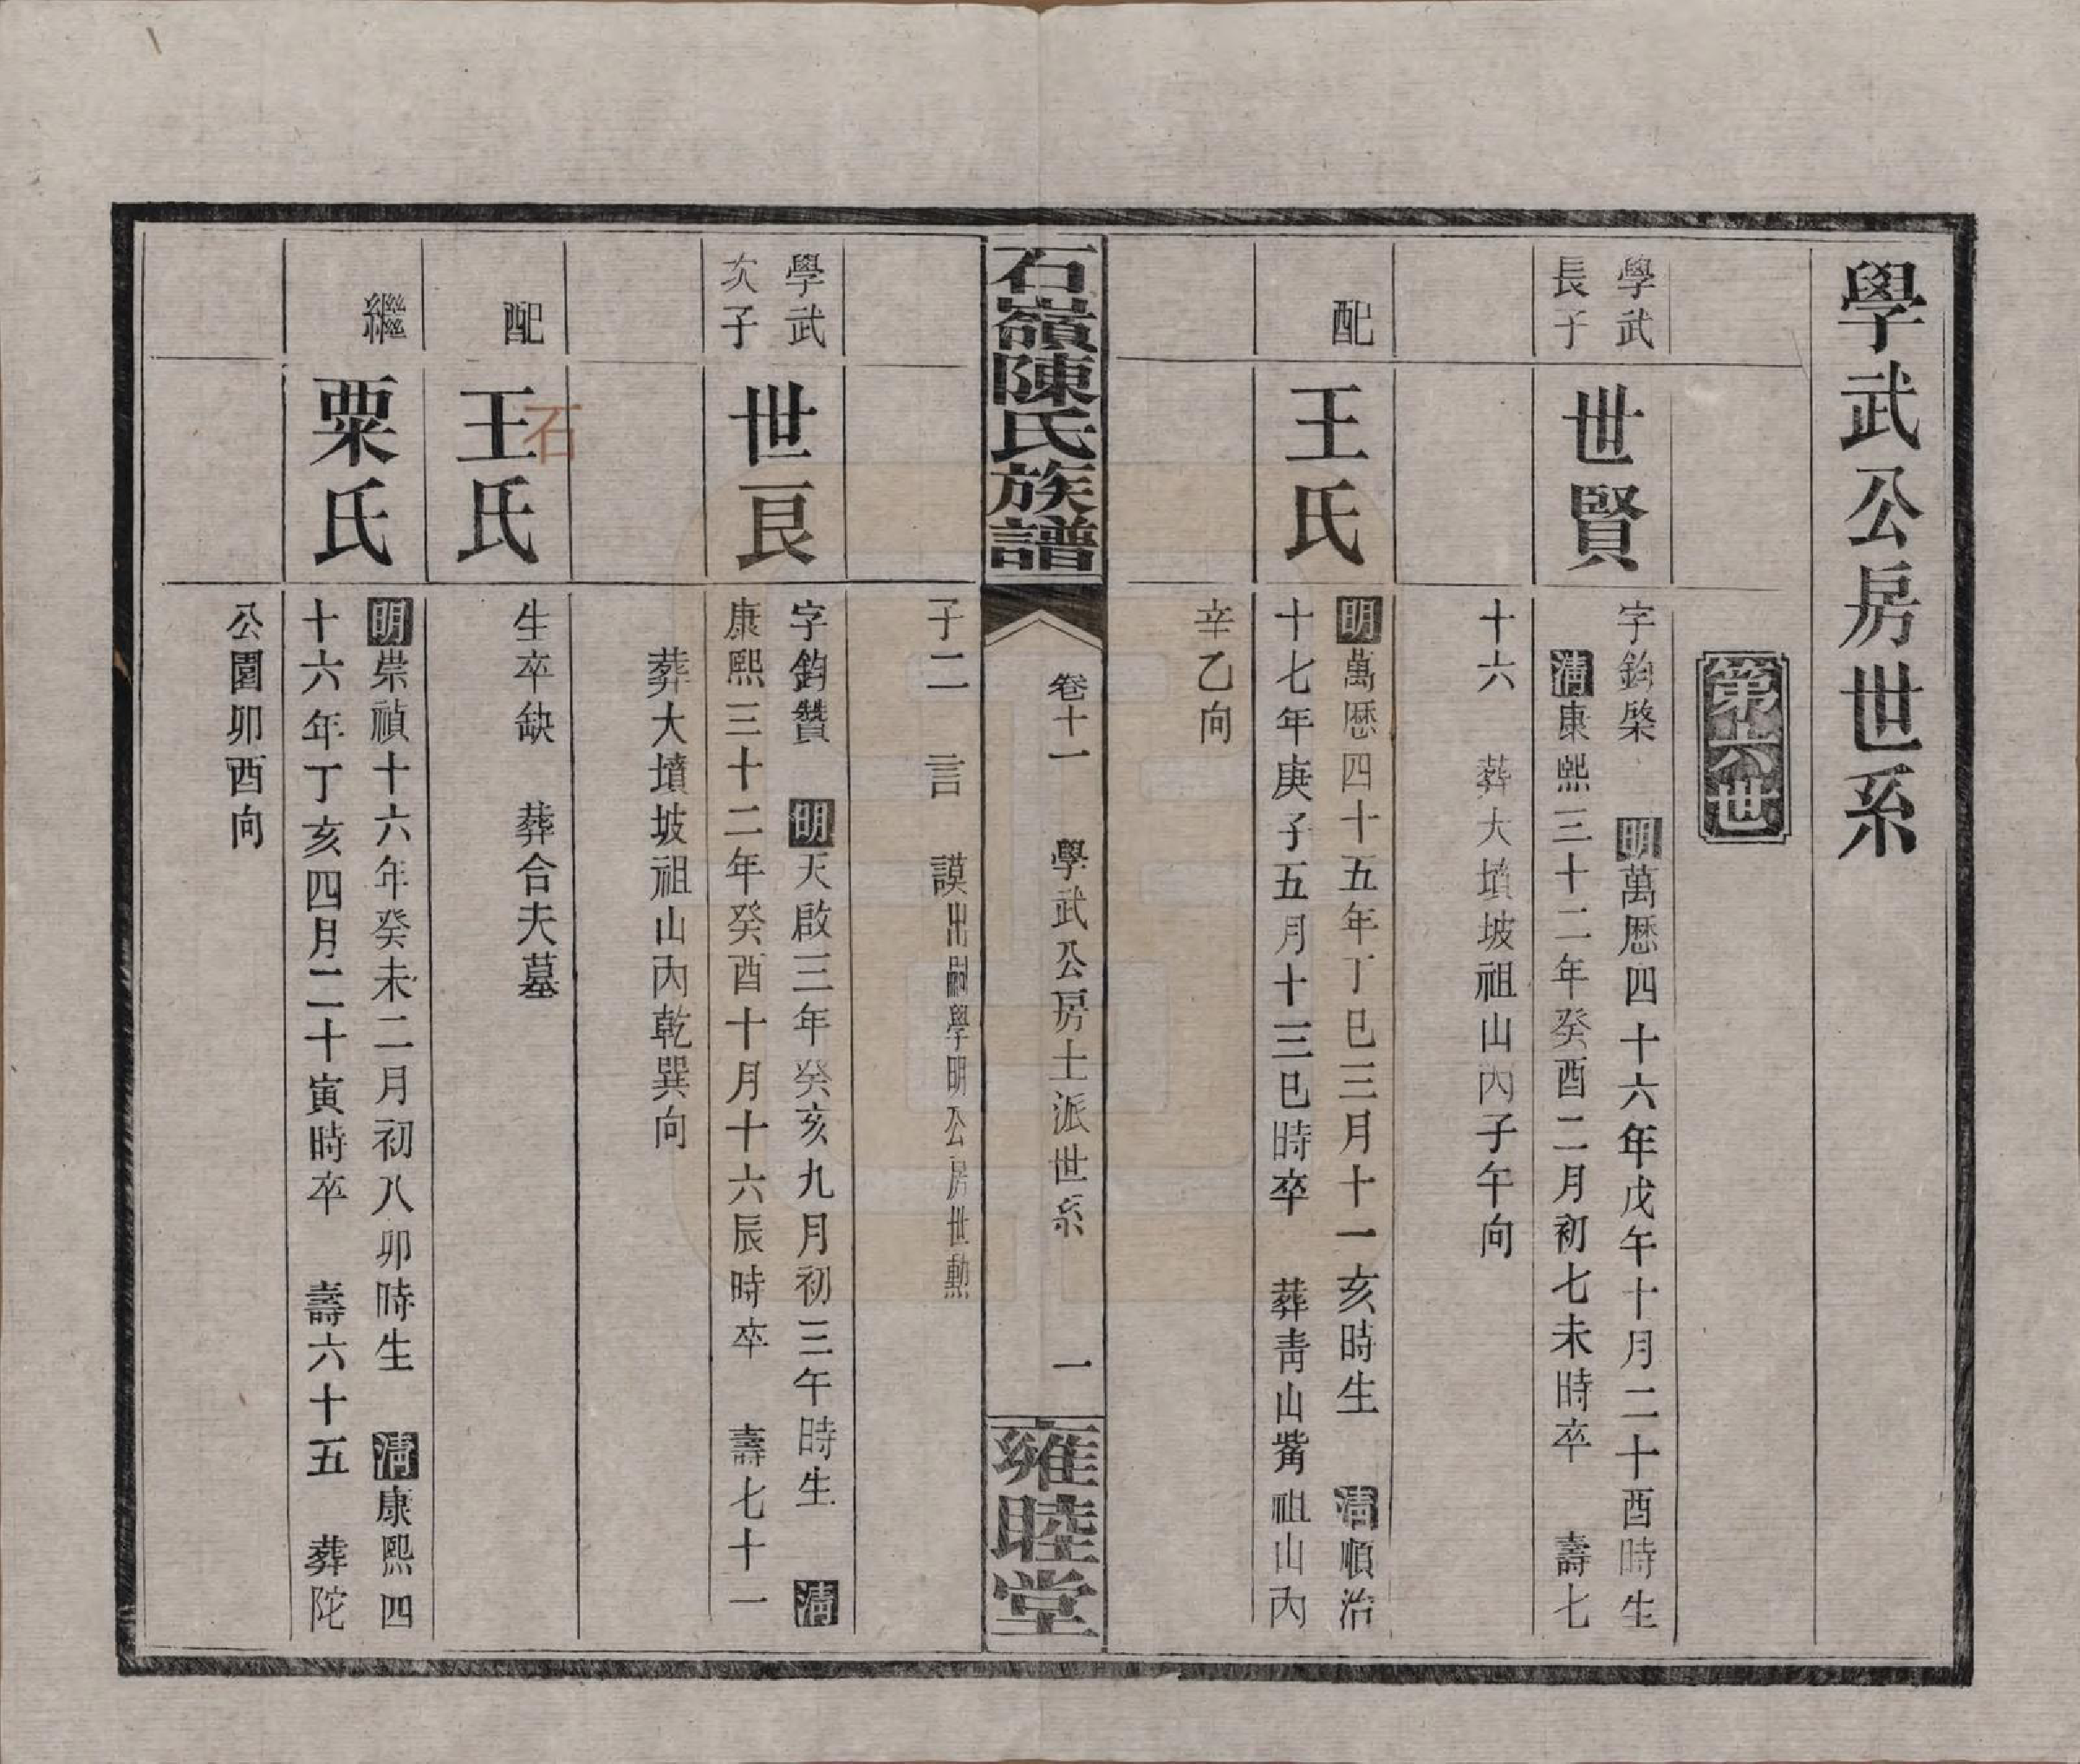 學武公房世系
第六世
學武
長子
世賢
字鈞榮 明萬歷四十六年戊午十月二十酉時生
清康熙三十二年癸酉二月初七未時卒 壽七
十六 葬大墳坡祖山內子午向
配
王氏
明萬歷四十五年丁巳三月十一亥時生 清順治
十七年庚子五月十三巳時卒 葬青山嘴祖山內
辛乙向
石嶺陳氏族譜
卷十一 學武公房土派世系 一
雍睦堂
子二 言 謨出嗣學明公房世勳
學武
次子
世艮
字鈞贊 明天啟三年癸亥九月初三午時生 清
康熙三十二年癸酉十月十六辰時卒 壽七十一
葬大墳坡祖山內乾巽向
配
王氏
石
生卒缺 葬合夫墓
繼
粟氏
明崇禎十六年癸未二月初八卯時生 清康熙四
十六年丁亥四月二十寅時卒 壽六十五 葬陀
公園卯酉向